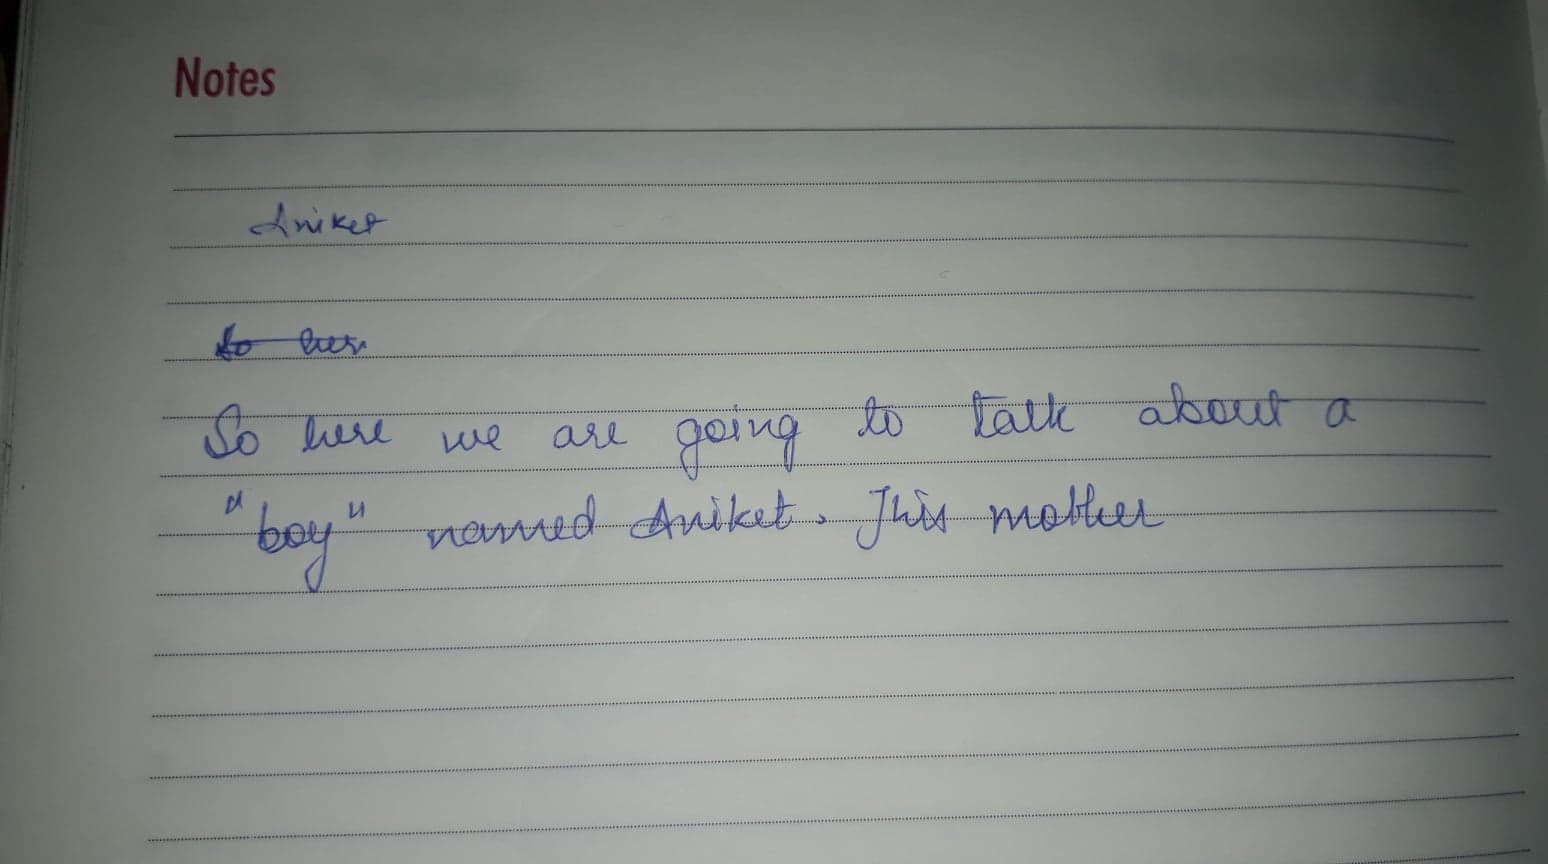 Notes
Aniket
So here
So here we are going to talk about a
"boy" named Aniket. This mother